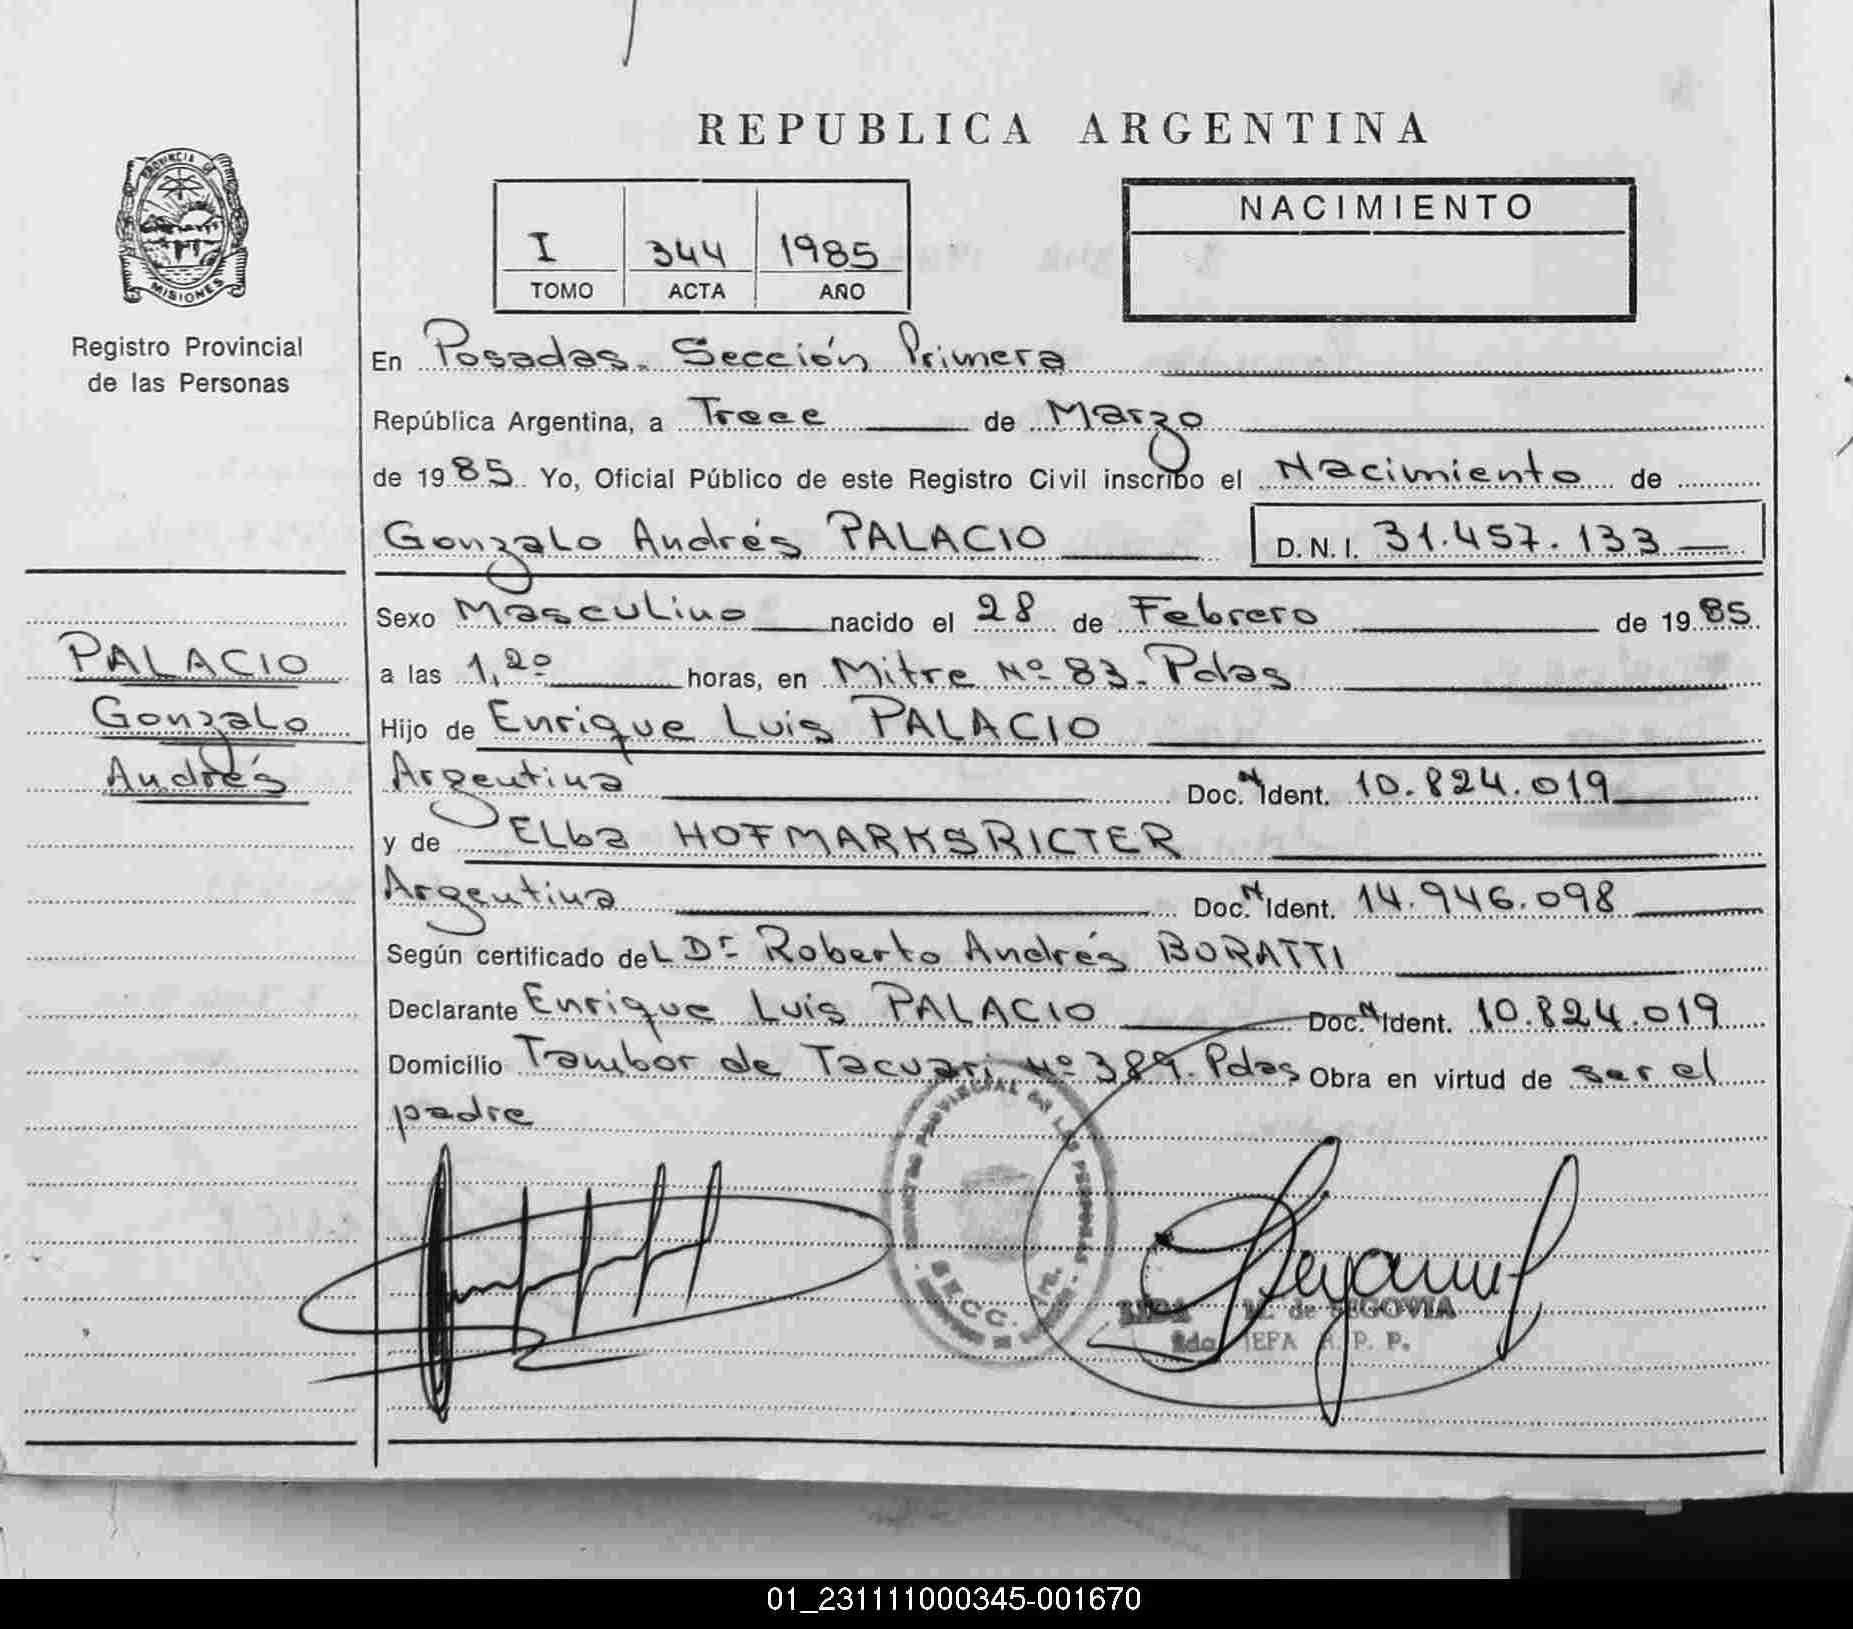 REPUBLICA ARGENTINA
PROVINCIA DE
MISIONES
Registro Provincial
de las Personas
I 344 1985
TOMO ACTA AÑO
NACIMIENTO
En Posadas. Sección Primera
República Argentina, a Trece de Marzo
de 1985 Yo, Oficial Público de este Registro Civil inscribo el Nacimiento de
Gonzalo Andrés PALACIO D.N.I. 31.457.133
Sexo Masculino nacido el 28 de Febrero de 1985.
a las 1,20 horas, en Mitre Nº 83. Pdas
Hijo de Enrique Luis PALACIO
Argentina Doc. N Ident. 10.824.019
y de Elba HOFMARKSRICTER
Argentina Doc. N Ident. 14.946.098
Según certificado del Dr Roberto Andrés BORATTI
Declarante Enrique Luis PALACIO Doc. N Ident. 10.824.019
Domicilio Tambor de Tacuari Nº 389. Pdas Obra en virtud de ser el
padre
PALACIO
Gonzalo
Andrés
REGISTRO PROVINCIAL DE LAS PERSONAS
SECC. 1ra.
de SEGOVIA
2da. JEFA R. P. P.
01_231111000345-001670